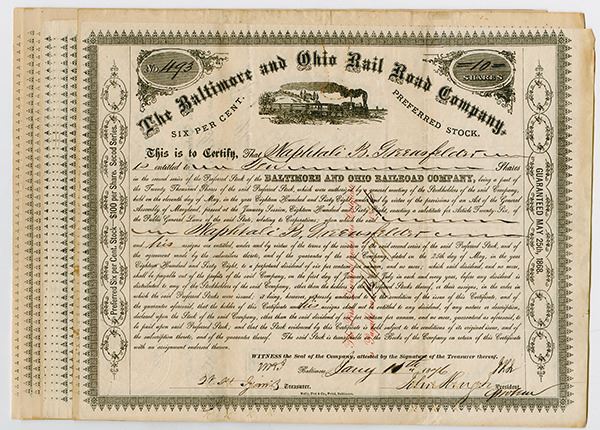 No. 493
10
SHARES
The Baltimore and Ohio Rail Road Company.
SIX PER CENT. PREFERRED STOCK.
This is to Certify, That Naphtali B. Greensfelder
is entitled to Ten Shares
in the second series of the Preferred Stock of the BALTIMORE AND OHIO RAILROAD COMPANY, being a part of
the Twenty Thousand Shares of the said Preferred Stock, which were authorized by a general meeting of the Stockholders of the said Company,
held on the eleventh day of May, in the year Eighteen Hundred and Sixty Eight, and by virtue of the provisions of an Act of the General
Assembly of Maryland, passed at the January Session, Eighteen Hundred and Sixty enacting a substitute for Article Twenty Six, of
the Public General Laws of the said State, relating to Corporations
Naphtali B. Greensfelder
and his assigns are entitled, under and by virtue of the terms of the second series of the said Preferred Stock, and of
the agreement made by the subscribers thereto, and of the guarantee of the said Company, dated on the 25th day of May, in the year
Eighteen Hundred and Sixty Eight, to a perpetual dividend of six per cent no more; which said dividend, and no more,
shall be payable out of the profits of the said Company, on the first days of January and July in each and every year, before any dividend is
distributed to any of the Stockholders of the said Company, other than the holders of the said Preferred Stock thereof, or their assigns, in the order in
which the said Preferred Stocks were issued; it being, however, expressly the condition of the issue of this Certificate, and of
the guarantee aforesaid, that the holder of this Certificate his assigns shall not be entitled to any dividend, of any nature or description,
declared upon the Stock of the said Company, other than the said dividend of six per cent per annum, and no more, guaranteed as aforesaid, to
be paid upon said Preferred Stock; and that the Stock evidenced by this Certificate is held subject to the conditions of its original issue, and of
the subscription thereto, and of the guarantee thereof. The said Stock is transferable in the Books of the Company on return of this Certificate
with an assignment endorsed thereon.
WITNESS the Seal of the Company, attested by the Signature of the Treasurer thereof,
Baltimore, Jany 1876
Treasurer. President
Preferred Six per Cent. Stock $100 per Share. Second Series.
GUARANTEED MAY 25th 1868.